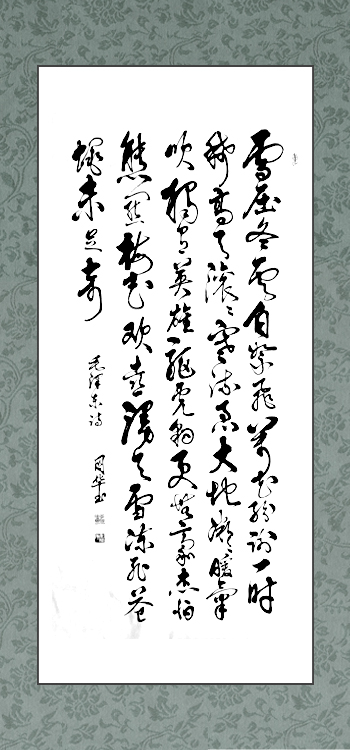 雪压冬云白絮飞万花纷谢一时
稀高天滚滚寒流急大地微微暖气
吹独有英雄驱虎豹更无豪杰怕
熊罴梅花欢喜漫天雪冻死苍
蝇未足奇
毛泽东诗